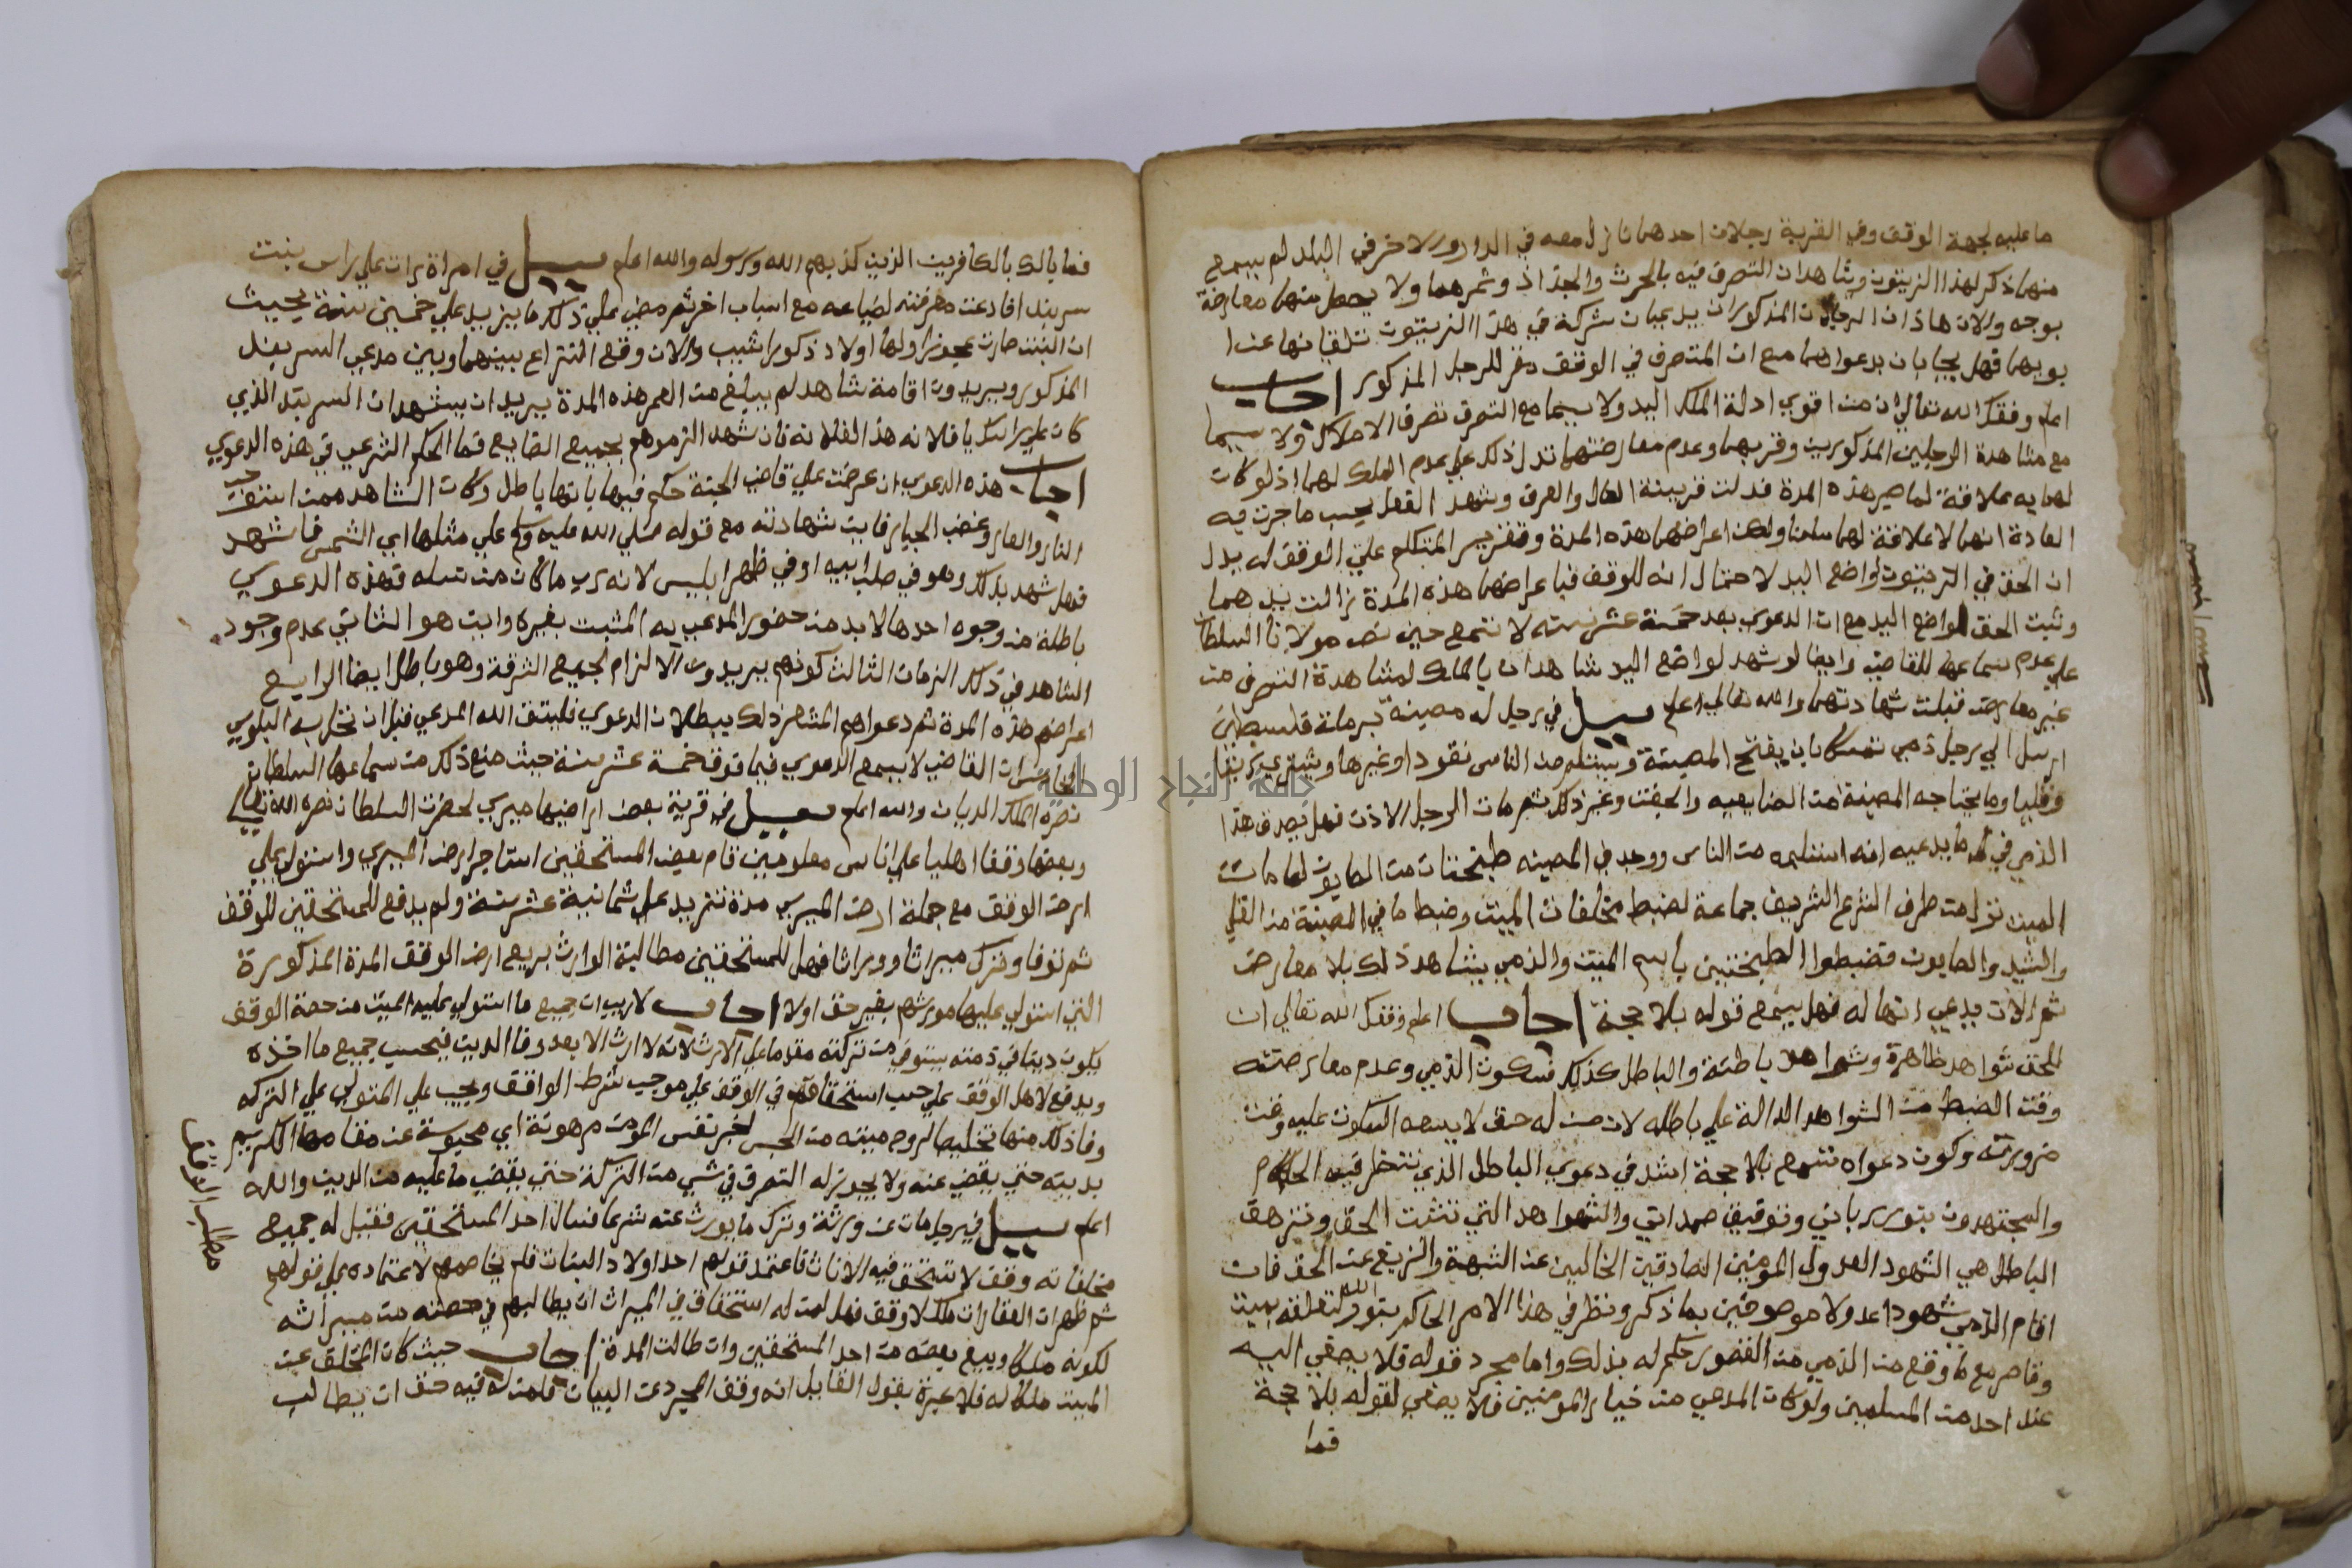 ما عليه لجهة الوقف وفي القرية رجلان احدهما نازل معه في الدار والاخر في البلد لم يسمع
منهما ذكر لهذا الزيتون ويشاهدان التصرف فيه بالحرث والجذاذ وثمرهما ولا يحصل منهما معارضة
بوجه والان هاذان الرجلان المذكوران يدعيان شركة في هذا الزيتون تلقيانها عن ا
بويهما فهل يجابان بدعواهما مع ان المتصرف في الوقف دفر للرجل المذكور اجاب
اعلم وفقك الله تعالي ان من اقوي ادلة الملك اليد ولا سيما مع التصرف تصرف الاملاك ولا سيما
مع مشاهدة الرجلين المذكورين وقربهما وعدم معارضتهما تدل ذلك علي عدم الملك لهما اذ لو كان
لهما به علاقة لما صبر هذه المدة فدلت قرينة الحال والعرف وشهد العقل بحسب ما جرت فيه
العادة انهما لا علاقة لهما سلمنا ولكن اعراضهما هذه المدة وتقرير المتكلم علي الوقف له يدل
ان الحق في الزيتون لواضع اليد لاحتمال انه للوقف فباعراضهما هذه المدة زالت يدهما
وثبت الحق لواضع اليد مع ان الدعوي بعد خمسة عشر سنه لا تسمع حين نص مولانا السلطان
علي عدم سماعها للقاضي وايضا لو شهد لواضع اليد شاهدان بالملك لمشاهدة التصرف من
غير معارض قبلت شهادتهما والله تعالي اعلم سيل في رجل له مصبنة برملة فلسطين
ارسل الي رجل ذمي تمسكا بان يفتح المصبنة ويستلم من الناس نقودا وغيرها ويشتري زيتا
وقليا وما يحتاجه المصبنة من الصابعيه والحفت وغير ذلك ثم مات الرجل الاذن فهل يصدق هذا
الذمي في كل ما يدعيه انه استلمه من الناس ووجد في المصبنه طبختان من الصابون لما مات
الميت نزل من طرف الشرع الشريف جماعة لضبط مخلفات الميت وضبط ما في المصبنة من القلي
والشيد والصابون فضبطوا الطبختين باسم الميت والذمي يشاهد ذلك بلا معارض
ثم الان يدعي انها له فهل يسمع قوله بلا حجة اجاب اعلم وفقك الله تعالي ان
للحق شواهد ظاهرة وشواهد باطنة والباطل كذلك فسكوت الذمي وعدم معارضته
وقت الضبط من الشواهد الدالة علي باطله لان من له حق لا يسعه السكوت عليه وقت
ضرورته وكون دعواه تسمع بلا حجة اشد في دعوي الباطل الذي تنتظر فيه الحكام
والمجتهدون بنور رباني وتوقيف صمداني والشواهد التي تثبت الحق وتزهق
الباطل هي الشهود العدول المومنين الصادقين الخاليين عن الشبهة والزيغ عن الحق فان
اقام الذمي شهودا عدولا موصوفين بما ذكر ونظر في هذا الامر الحاكم بنور الله لتعلقه بميت
وقاصر مع ما وقع من الذمي من القصور حكم له بذلك واما مجرد قوله فلا يصغي اليه
عند احد من المسلمين ولو كان المدعي من خيار المومنين فلا يصغي لقوله بلا حجة
فما
فما بالك بالكافرين الذين كذبهم الله ورسوله والله اعلم سيل في امراة رات علي راس بنت
سربند افادعت معرفته لضياعه مع اسباب اخر ثم مضي علي ذلك ما يزيد علي خمسين سنة بحيث
ان البنت صارت عجوزا ولها اولاد ذكورا شيب والان وقع النزاع بينهما وبين مدعي السربند
المذكور ويريدون اقامة شاهد لم يبلغ من العمر هذه المدة يريد ان يشهد ان السربند الذي
كان علي راسك يا فلانه هذا لفلانه فان شهد الزموهم بجميع الضايع فما الحكم الشرعي في هذه الدعوي
اجاب هذه الدعوي ان عرضت علي قاضي الجنة حكم فيها بانها باطل وكان الشاهد ممن استوجب
النار والعار وغضب الجبار فابت شهادته مع قوله صلي الله عليه وسلم علي مثلها اي الشمس فاشهد
فهل شهد بذلك وهو في صلب ابيه او في ظهر ابليس لانه ربما كان من نسله فهذه الدعوي
باطلة من وجوه احدها لابد من حضور المدعي به المثبت بغيره وايت هو الثاني عدم وجود
الشاهد في ذلك الزمان الثالث كونهم يريدون الالزام بجميع السرقة وهو باطل ايضا الرابع
اعراضهم هذه المدة ثم دعواهم المشعر ذلك ببطلان الدعوي فليتق الله المدعي قبل ان تحل به البلوي
الخامس ان القاضي لا يسمع الدعوي فيما فوق خمسة عشر سنة حيث منع ذلك من سماعها السلطان
نصره الملك الديان والله اعلم سيل في قرية بعض اراضيها ميري لحضرت السلطان نصره الله تعالي
وبعضها وقفا اهليا علي اناس معلومين قام بعض المستحقين استاجر ارض الميري واستولي علي
ارض الوقف مع جملة ارض الميري مدة تزيد علي ثمانية عشر سنة ولم يدفع للمستحقين للوقف
ثم توفا وترك ميراثا ووراثا فهل للمستحقين مطالبة الوارث بريع ارض الوقف المدة المذكورة
التي استولي عليها مورثهم بغير حق اولا اجاب لا ريب ان جميع ما استولي عليه الميت من حصة الوقف
يكون دينا في ذمته يستوفي من تركته مقدما علي الارث لانه لا ارث الا بعد وفا الدين فيحسب جميع ما اخذه
ويدفع لاهل الوقف علي حسب استحقاقهم في الوقف علي موجب شرط الواقف ويجب علي المتولي علي التركه
وفا ذلك منها تخليصا لروح ميته من الحبس لخبر نفس المومن مرهونة اي محبوسة عن مقامها الكريم
بدينه حتي يقضي عنه ولا يجوز له التصرف في شي من التركة حتي يقضي ما عليه من الدين والله
اعلم سيل في رجل مات عن ورثة وترك ما يورث عنه شرعا فسال احد المستحقين فقيل له جميع
مخلفاته وقف لا تستحق فيه الاناث فاعتمد قولهم احد اولاد البنات فلم يخاصمهم لاعتماده علي قولهم
ثم ظهر ان العقارات ملك لا وقف فهل لمن له استحقاق في الميراث ان يطالبهم في حصته من ميراثه
لكونه ملكا وبيع بعضه من احد المستحقين وان طالت المدة اجاب حيث كان المخلف عن
الميت ملكا له فلا عبرة بقول القايل انه وقف المجرد عن البيان فلمن له فيه حق ان يطالب
مطلب الوقف
جامعة النجاح الوطنية